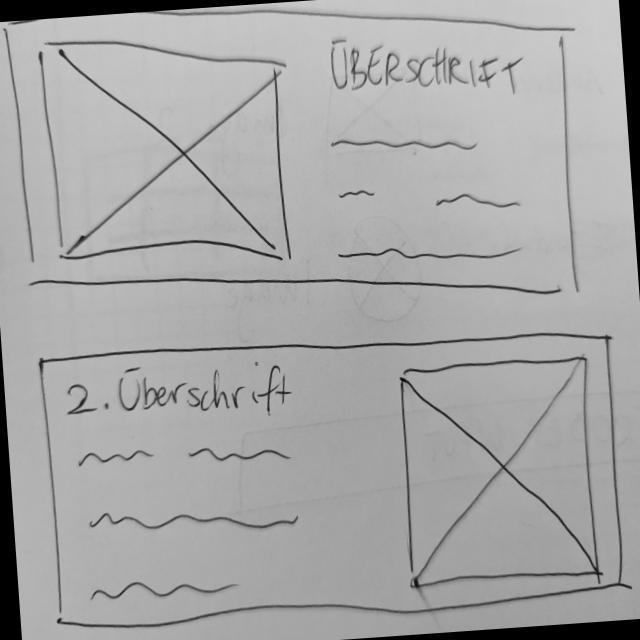 ÜBERSCHRIFT
2. Überschrift